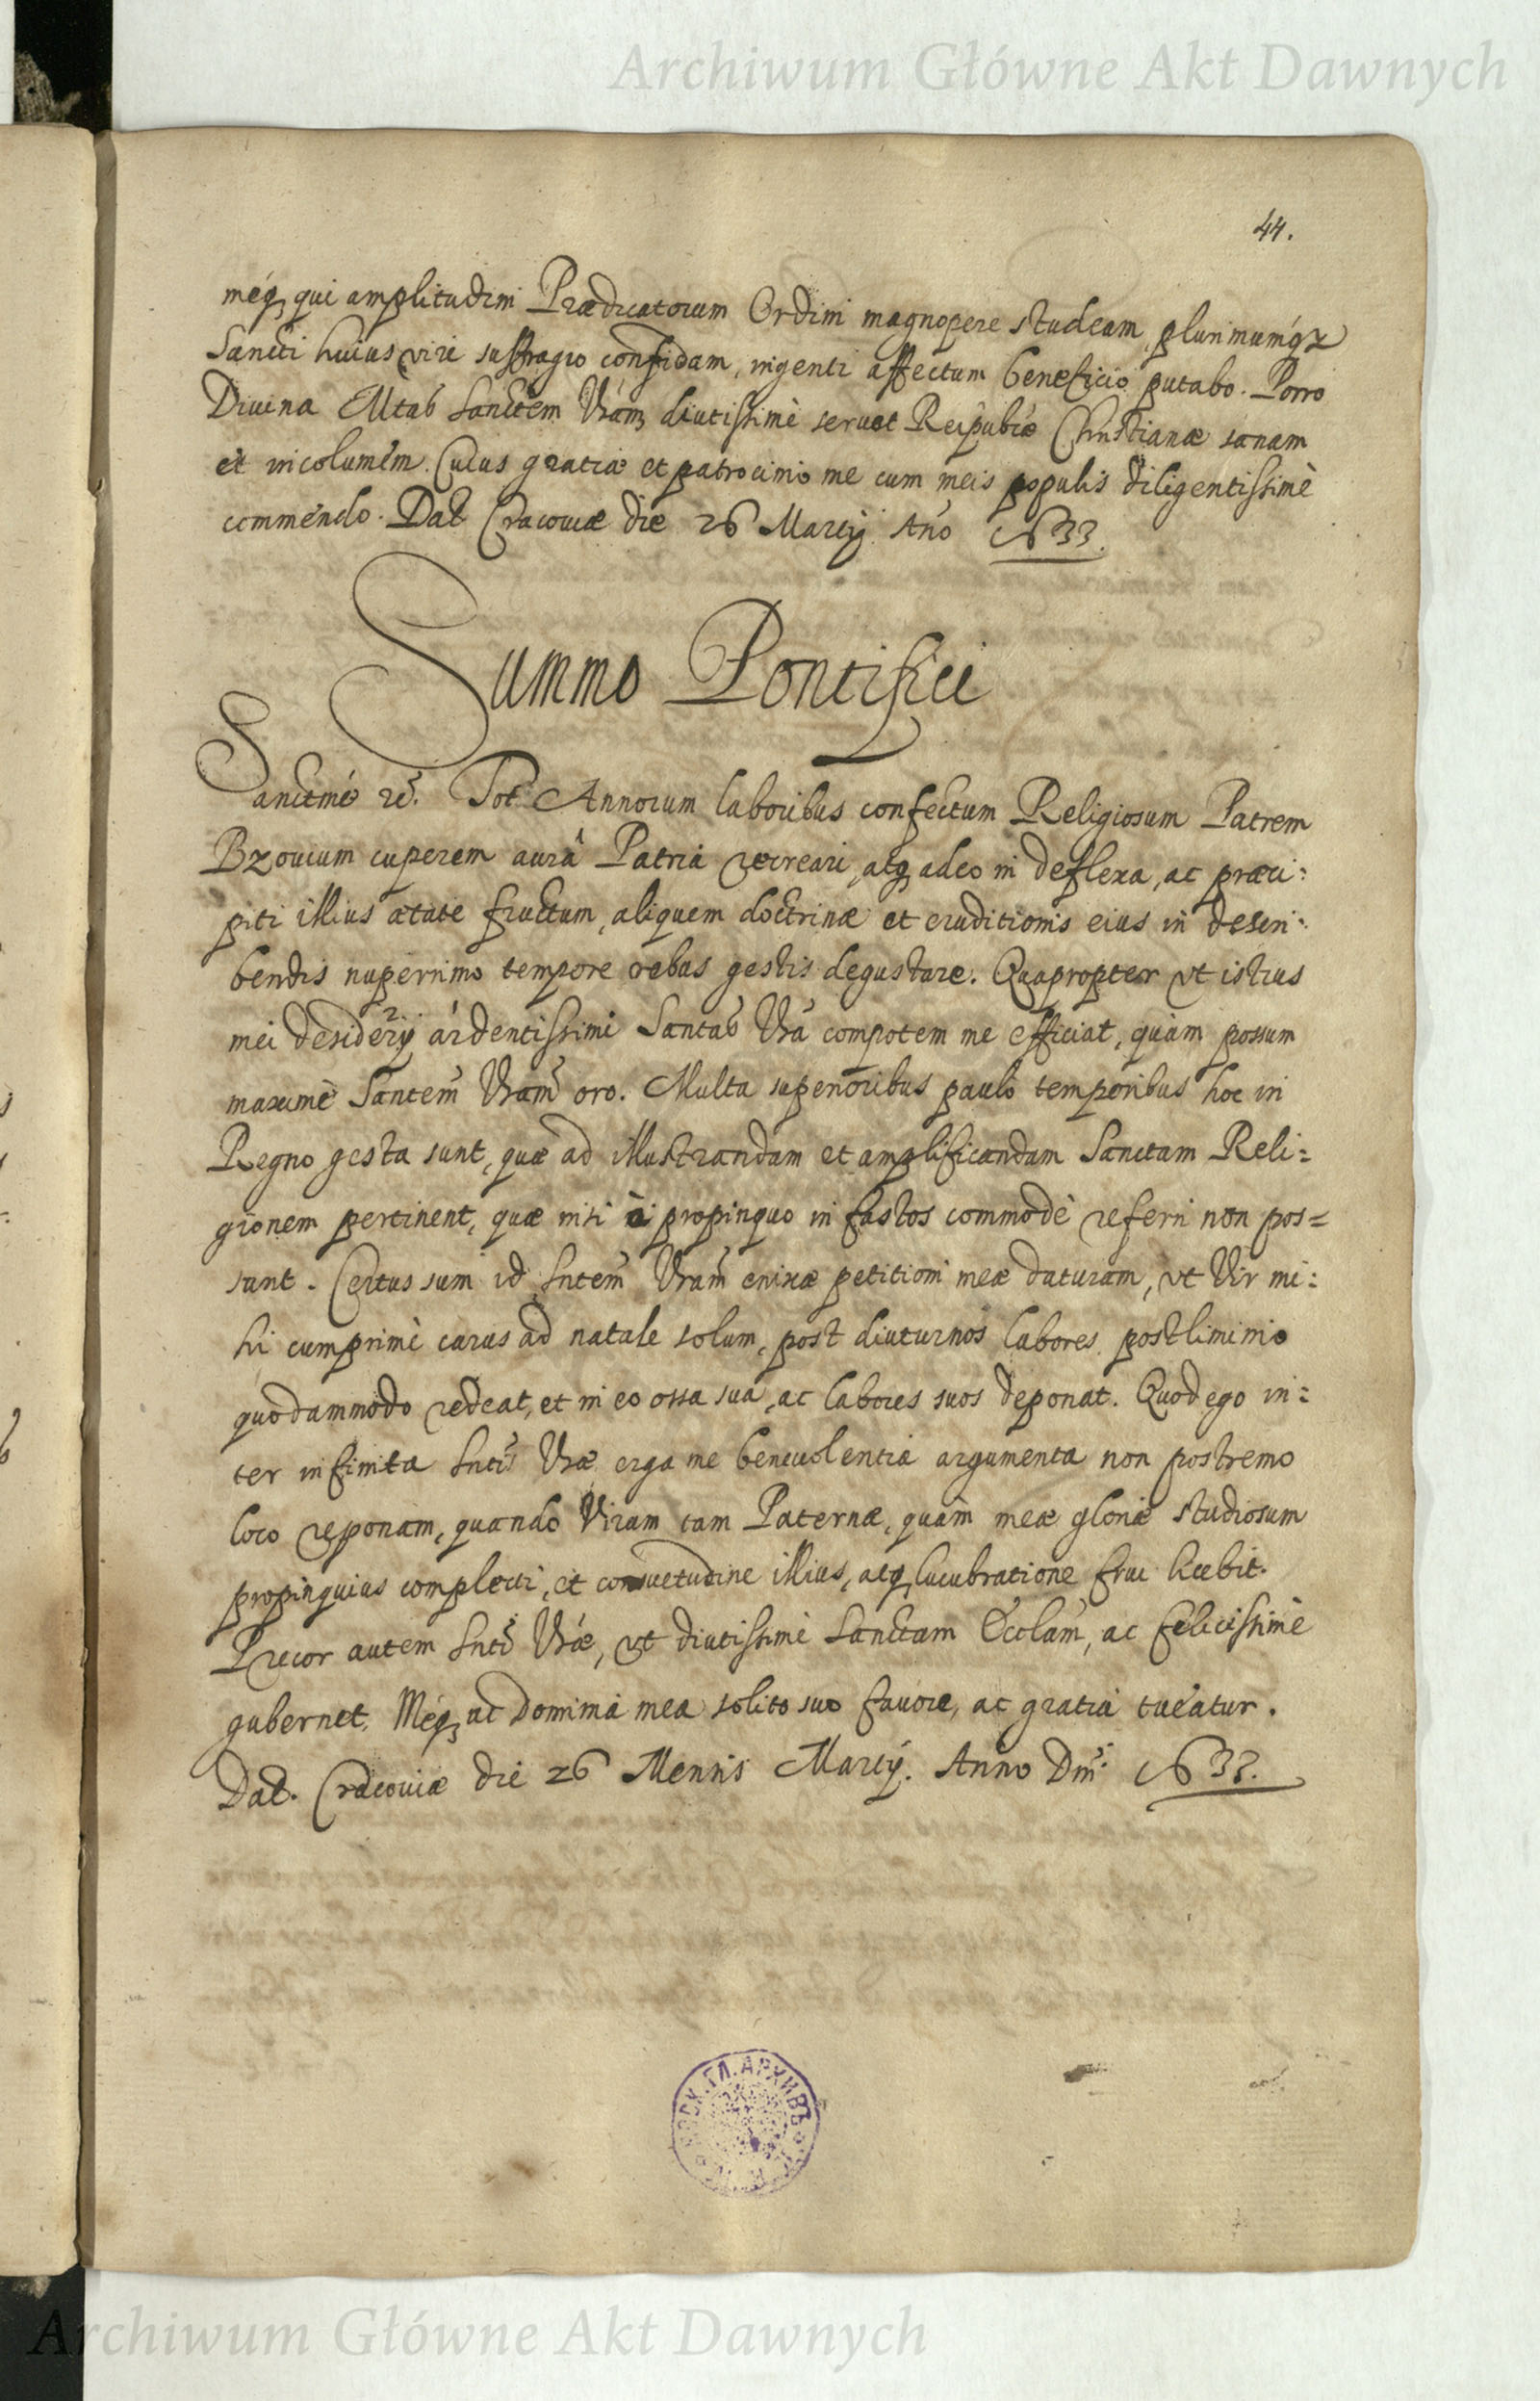 Archiwum Główne Akt Dawnych
44.
méq, qui amplitudini Prædicatorum Ordini magnopere studeam, plurimumq́z
Sancti huius viri suffragio confidam, ingenti affectum beneficio putabo. Porro
Diuina Mtas Sanctem Vram diutissimè seruet Reipubcæ Christianæ sanam
et incolumem. Cuius gratiæ et patrocinio me cum meis populis diligentissimè
commendo. Dat Cracouiæ die 26 Martij Ano 1633.
Summo Pontifici
Sanctme etc. Tot Annorum laboribus confectum Religiosum Patrem
Bzouium cuperem aurâ Patriâ recreari, atq, adeo in deflexa, ac præci:
piti illius ætate fructum, aliquem doctrinæ et eruditionis eius in descri:
bendis nuperrimo tempore rebus gestis degustare. Quapropter vt istius
mei desiderij árdentissimi Santas Vra compotem me efficiat, quàm possum
maximè Santem Vram oro. Multa superioribus paulò temporibus hoc in
Regno gesta sunt, quæ ad illustrandam et amplificandam Sanctam Reli=
gionem pertinent, quæ nisi è propinquo in fastos commodè referri non pos=
sunt. Certus sum id Sntem Vram enixæ petitioni meæ daturam, vt Vir mi:
hi cumprimè carus ad natale solum, post diuturnos labores, postliminio
quodammodo redeat, et in eo ossa sua, ac labores suos deponat. Quod ego in:
ter infinita Sntis Vræ erga me beneuolentiæ argumenta non postremo
loco reponam, quando Virum tam Paternæ, quàm meæ gloriæ studiosum
propinquius complecti, et consuetudine illius, atq, lucubratione frui licebit.
Precor autem Snti Vræ, vt diutissimè Sanctam Ecclam, ac felicissimè
gubernet, Méq, ac Dominia mea solito suo fauore, ac gratia tueatur.
Dat. Cracouiæ die 26 Mensis Martij. Anno Dni 1633.
Archiwum Główne Akt Dawnych